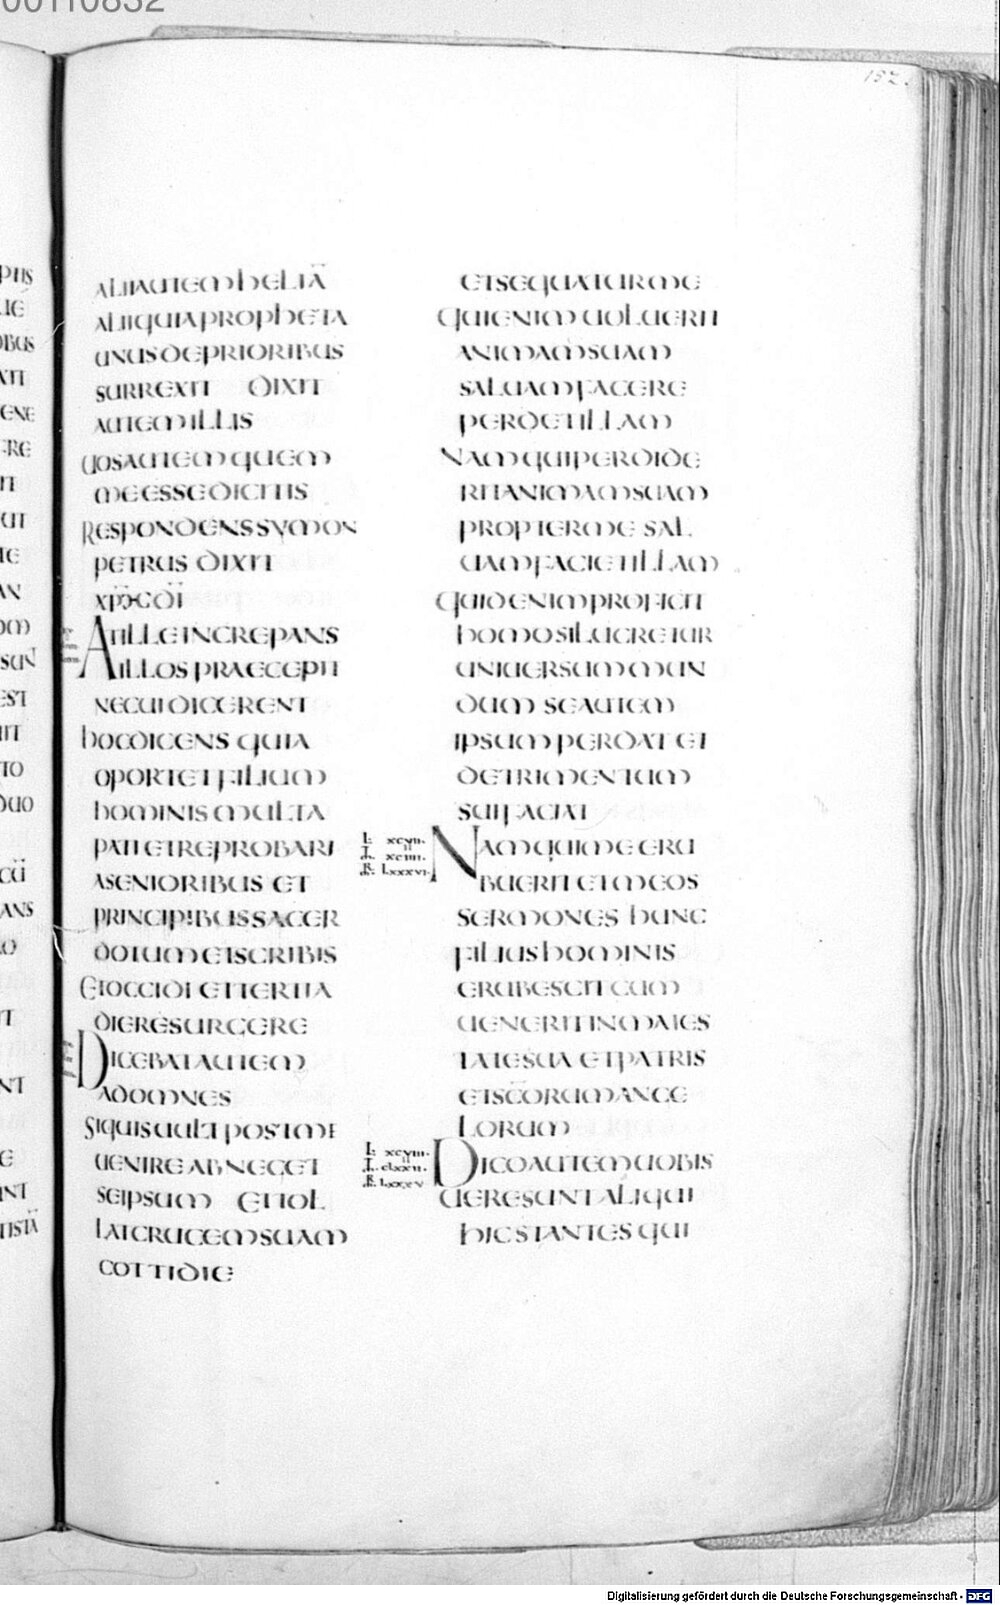 00110832
152.
ALIIAUTEMhELIĀ
ALIIQUIAPROPhETA
UNUSDEPRIORIBUS
SURREXIT DIXIT
AUTEMILLIS
UOSAUTEMQUEM
MEESSEDICITIS
RESPONDENSSYMON
PETRUS DIXIT
XPM̄DĪ
ATILLEINCREPANS
ILLOSPRAECEPIT
NECUIDICERENT
hOCDICENS QUIA
OPORTETFILIUM
hOMINISMULTA
PATIETREPROBARI
ASENIORIBUS ET
PRINCIPIBUSSACER
DOTUMETSCRIBIS
ETOCCIDIETTERTIA
DIERESURGERE
DICEBATAUTEM
ADOMNES
SIQUISUULTPOSTME
UENIREABNEGET
SEIPSUM ETTOL
LATCRUCEMSUAM
COTTIDIE
ETSEQUATURME
QUIENIMUOLUERIT
ANIMAMSUAM
SALUAMFACERE
PERDETILLAM
NAMQUIPERDIDE
RITANIMAMSUAM
PROPTERME SAL
UAMFACIETILLAM
QUIDENIMPROFICIT
hOMOSILUCRETUR
UNIUERSUMMUN
DUM SEAUTEM
IPSUMPERDAT ET
DETRIMENTUM
SUIFACIAT
NAMQUIMEERU
BUERITETMEOS
SERMONES hUNC
FILIUShOMINIS
ERUBESCITCUM
UENERITINMAIES
TATESUA ETPATRIS
ETSCŌRUMANGE
LORUM
DICOAUTEMUOBIS
UERESUNTALIQUI
hICSTANTESQUI
Digitalisierung gefördert durch die Deutsche Forschungsgemeinschaft - DFG